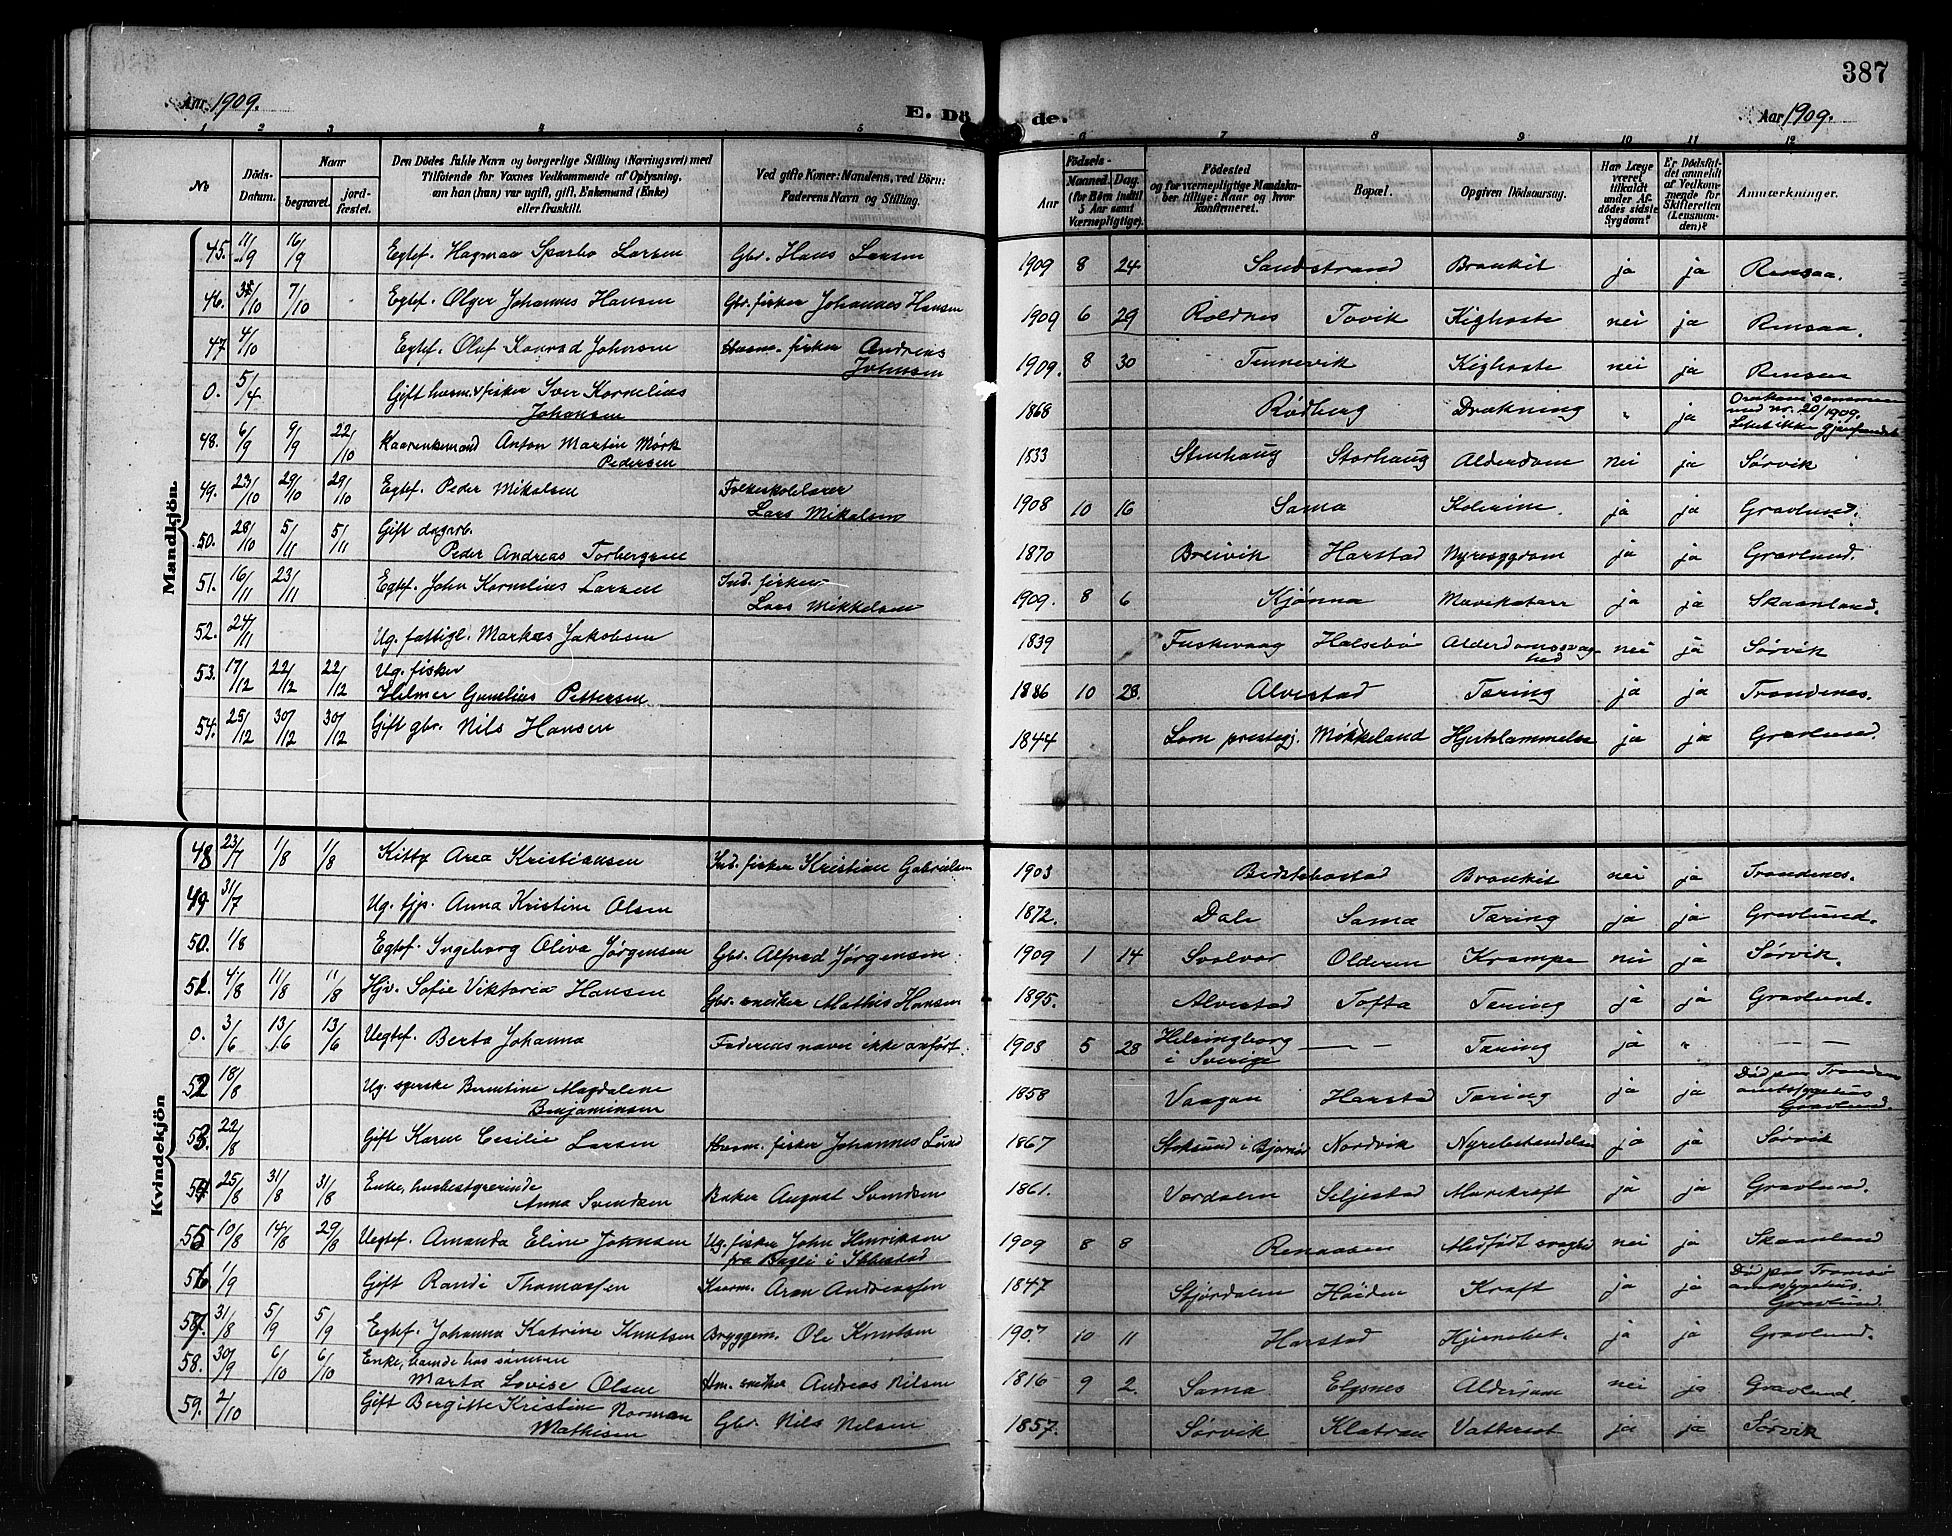 387
Aar 1909.
E. Döde.
Aar 1909.
1 2 3 4 5 6 7 8 9 10 11 12
No
Döds-Datum.
Naar
begravet.
jordfæstet.
Den Dödes fulde Navn og borgerlige Stilling (Næringsvei) med
Tilföiende for Voxnes Vedkommende af Oplysning,
om han (hun) var ugift, gift, Enkemand (Enke)
eller fraskilt.
Ved gifte Koner: Mandens, ved Börn:
Faderens Navn og Stilling.
Födsels-
Aar
Maaned. Dag.
(for Börn indtil
5 Aar samt
Værnepligtige).
Födested
og for værnepligtige Mandska-
ber tillige: Naar og hvor
konfirmeret.
Bopæl.
Opgiven Dödsaarsag.
Har Læge
været
tilkaldt
under Af-
dödes sidste
Sygdom?
Er Dödsfal-
det anmeldt
af Vedkom-
mende for
Skifteretten
(Lensman-
den)?
Anmærkninger.
Mandkjön
45. 11/9 16/9 Egtef. Hagman Sparbo Larsen Gbr. Hans Larsen 1909 8 24 Sandstrand Bronkit ja ja Rensaa.
46. /10 7/10 Egtef. Olger Johannes Hansen Gbr. fisker Johannes Hansen 1909 6 29 Roldnes Tovik Kighoste nei ja Rensaa.
47. 4/10 Egtef. Oluf Konrad Johnsen Husm. fisker Andreas Johnsen 1909. 8 30 Tennevik Kighoste nei ja Rensaa
0. 5/4 Gift husm. & fisker Iver Kornelius Johansen 1868 Rødberg Drukning " ja Omkom sammen med nr. 20/1909. Liket ikke gjenfundet
48. 6/9 9/9 22/10 Kaarenkemand Anton Martin Mørk Pedersen 1833 Stenhaug Storhaug Alderdom nei ja Sørvik
49. 23/10 29/10 29/10 Egtef. Peder Mikalsen Folkeskolelærer Lars Mikalsen 1908 10 16 Sama Kolerine. ja ja Gravlund.
50. 28/10 5/11 5/11 Gift dagarb. Peder Andreas Torbergsen 1870 Breivik Harstad Nyresygdom ja ja Gravlund.
51. 16/11 23/11 Egtef. John Kornelius Larsen Ind. fisker Lars Mikkelsen 1909. 8 6 Kjønna Mavekatarr ja ja Skaanland.
52. 24/11 Ug. fattigl. Markus Jakobsen 1839 Fuskevaag Halsebø Alderdomssvaghed nei ja Sørvik
53. 17/12 22/12 22/12 Ug. fisker Hilmer Gunelius Pettersen 1886 10 28. Alvestad Tæring ja ja Trondenes.
54. 25/12 30/12 30/12 Gift gbr. Nils Hansen 1844 Lom prestegj. Møkkeland Hjertelammelse ja ja Gravlund.
Kvindekjön
48 23/7 1/8 1/8 Kitty Area Kristiansen Ind. fisker Kristian Gabrielsen 1903 Bedstebostad Bronkit nei ja Trondenes.
49 31/7 Ug. tjp. Anna Kristine Olsen 1872. Dale Sama Tæring ja ja Gravlund.
50. 1/8 Egtef. Ingeborg Oliva Jørgensen Gbr. Alfred Jørgensen 1909 1 14 Svolvær Olderen Krampe nei ja Sørvik.
51. 4/8 11/8 11/8 Hjv. Sofie Viktoria Hansen Gbr. snekker Mathis Hansen 1895. Alvestad Tofta Tæring ja ja Gravlund.
0. 3/6 13/6 13/6 Uegtef. Berta Johanna Faderens navn ikke anført. 1908 5 28 Helsingborg i Sverige — — Tæring ja " — —
52 18/8 Ug. syerske Berntine Magdalene Benjaminsen 1858 Vaagan Harstad Tæring ja ja Død paa amtssygehus Gravlund.
53. 22/8 Gift Karen Cecilie Larsen Husm. fisker Johannes Lund 1867 Stoksund i Bjørnør Nordvik Nyrebetændelse ja ja Sørvik
54. 25/8 31/8 31/8 Enke, husbestyrerinde Anna Svendsen Baker August Svendsen 1861. Værdalen Seljestad Mavekræft ja ja Gravlund.
55 10/8 14/8 29/8 Uegtef. Amanda Eline Johnsen Ug. fisker John Henriksen fra i Ibbestad 1909 8 8 Renaasen Medfødt svaghed nei ja Skaanland
56. 1/9 Gift Randi Thomassen Kaarm. Aron Andreassen 1847 Stjørdalen Høiden Kræft ja ja Død paa Tromsø amtssygehus. Gravlund.
57. 31/8 5/9 5/9 Egtef. Johanna Katrine Knutsen Bryggem. Ole Knutsen 1907 10 11 Harstad Hjernebet. ja ja Gravlund.
58. 30/9 6/10 6/10 Enke, boende hos sønnen Marta Lovise Olsen Hm. snekker Andreas Nilsen 1816 9 2. Sama Elgsnes Alderdom nei ja Gravlund.
59. 2/10 Gift Bergitte Kristine Norman Mathisen Gbr. Nils Nilsen 1857. Sørvik Klatran Vattersot ja ja Sørvik